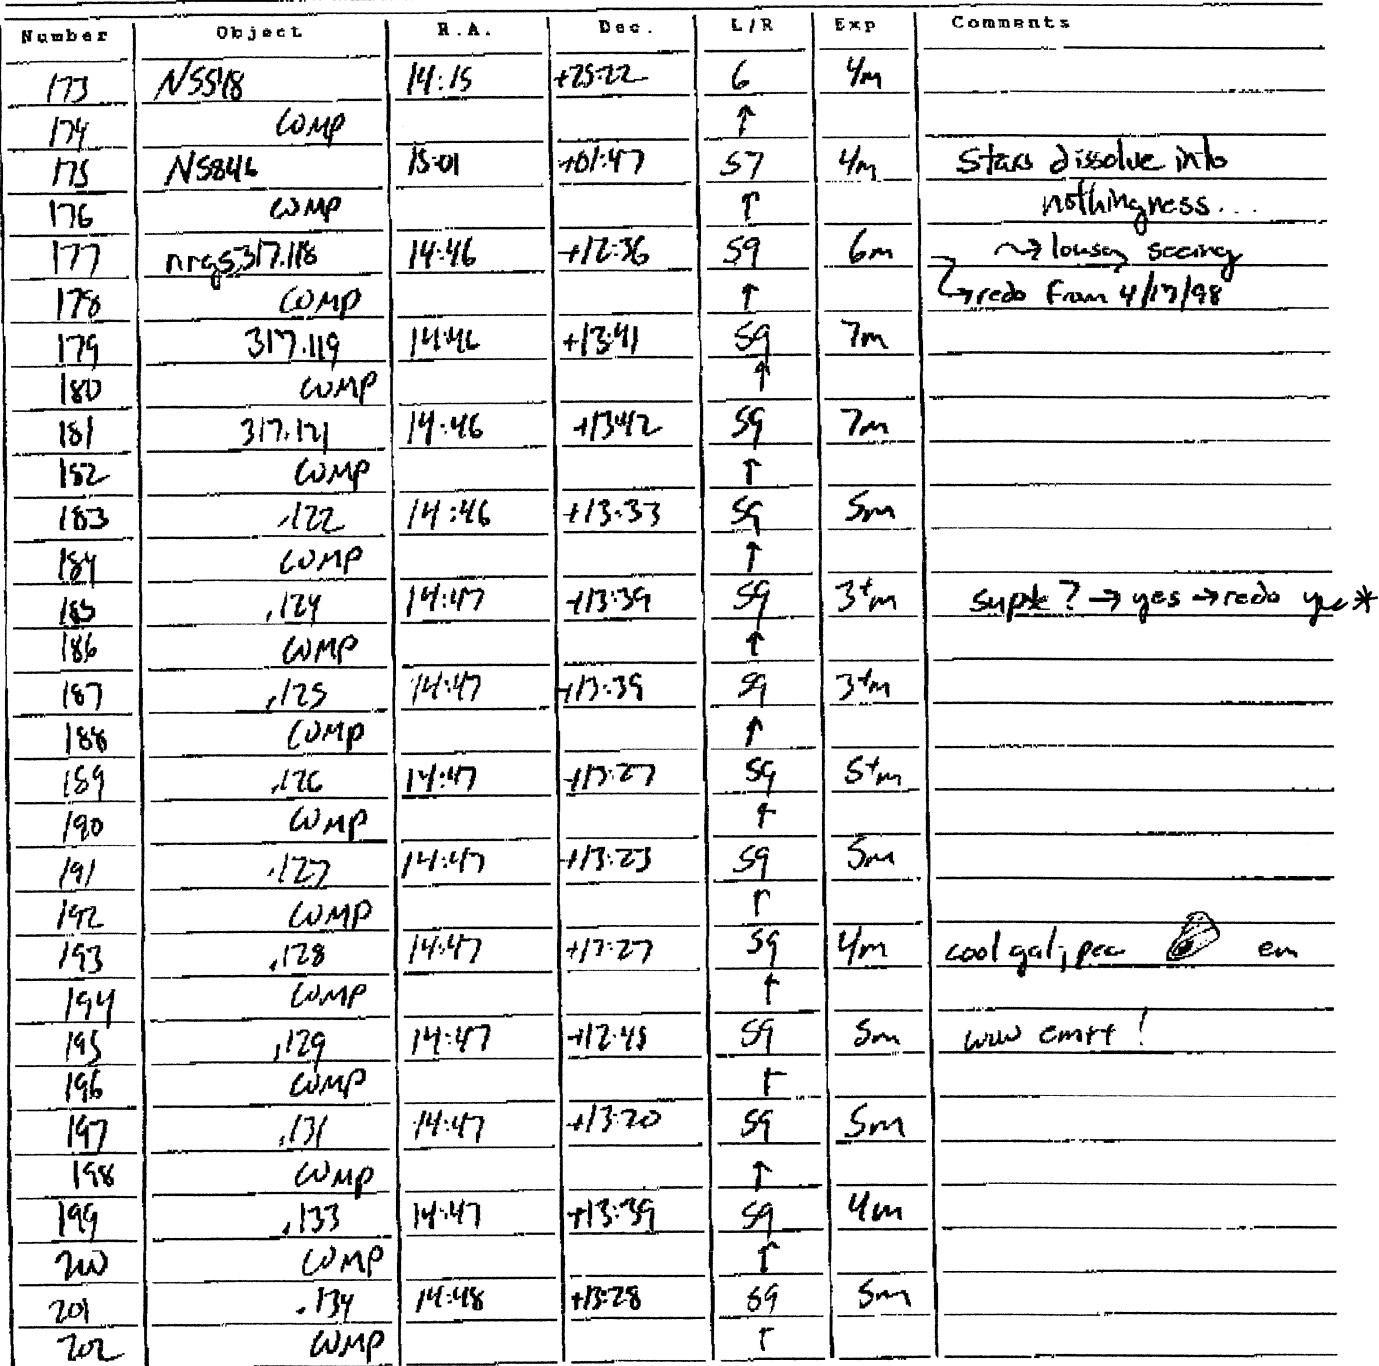 Number Object R.A. Dec. L/R Exp Comments
173 N5548 14:15 +25:22 6 4m
174 COMP ↑
175 N5846 15:01 +01:47 57 4m Stars dissolve into
176 COMP ↑ nothingness...
177 nrgs317.118 14:46 +12:36 59 6m → lousy seeing
178 COMP ↑ → redo from 4/17/98
179 317.119 14:46 +13:41 59 7m
180 COMP ↑
181 317.121 14:46 +13:42 59 7m
182 COMP ↑
183 .122 14:46 +13:33 59 5m
184 COMP ↑
185 .124 14:47 +13:39 59 3+m → yes → redo
186 COMP ↑
187 .125 14:47 +13:39 59 3+m
188 COMP ↑
189 .126 14:47 +13:27 59 5+m
190 COMP ↑
191 .127 14:47 +13:23 59 5m
192 COMP ↑
193 .128 14:47 +13:27 59 4m cool gal; pec em
194 COMP ↑
195 .129 14:47 +12:45 59 5m !
196 COMP ↑
197 .131 14:47 +13:20 59 5m
198 COMP ↑
199 .133 14:47 +13:39 59 4m
200 COMP ↑
201 .134 14:48 +13:28 59 5m
202 COMP ↑